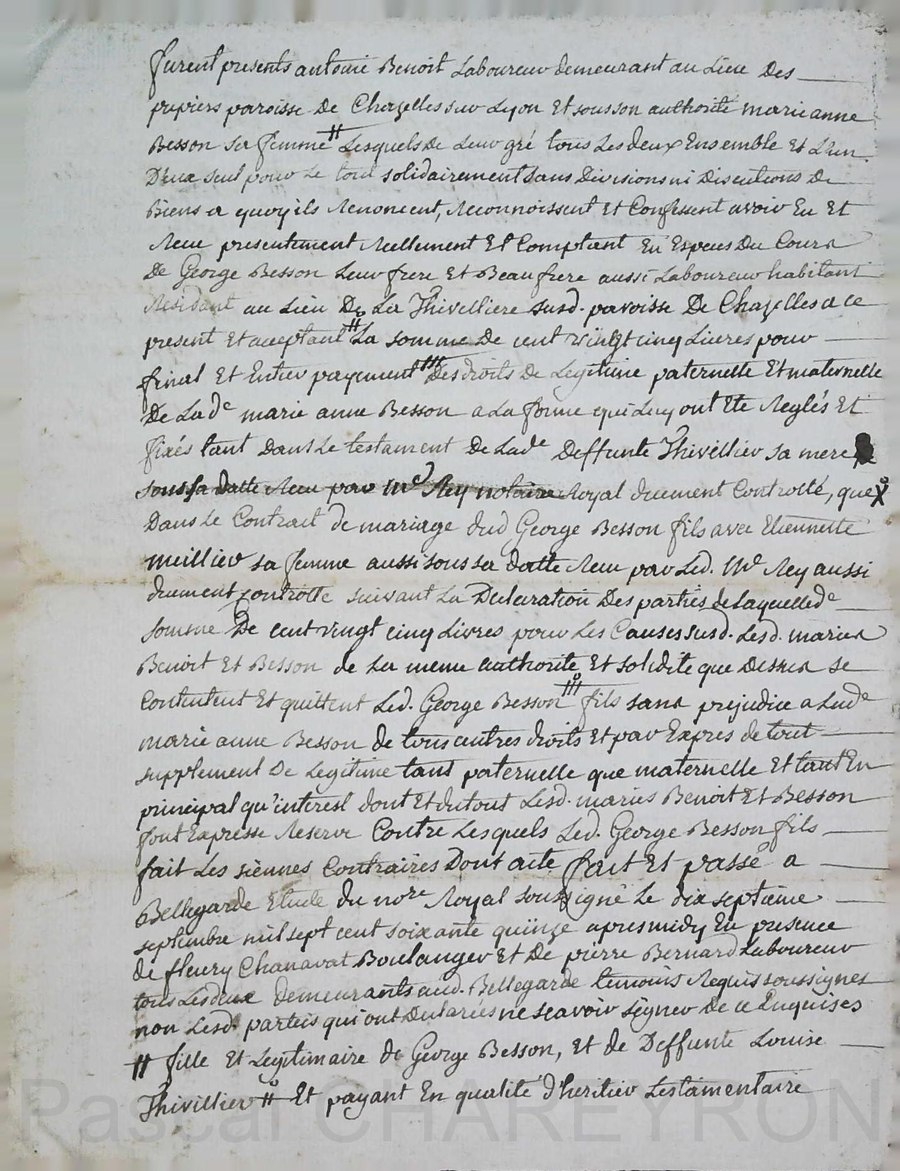 furent presents antoine Benoit Laboureur demeurant au Lieu Des
pupiers paroisse De Chazelles sur Lyon Et sous son authorité marie anne
Besson sa femme # Lesquels de Leur gré tous Les deux Ensemble Et L'un
D'eux seul pour Le tout solidairement sans Divisions ni Discutions De
Biens a quoy ils Renoncent, Reconnoissent Et Confessent avoir Eu Et
Reçu presentement Réellement Et Comptant En Especes Du Cours
De George Besson Leur frere Et Beaufrere aussi Laboureur habitant
Résidant au Lieu De La Thivelliere susd. paroisse De Chazelles a ce
present Et aceptant # La somme De cent vingt cinq Livres pour
final Et Entier payement Des droits De Legitime paternelle Et maternelle
De Lade marie anne Besson a La forme qui Luy ont Eté Reglés Et
fixés tant Dans Le testament De Lade Deffunte Thivellier sa mere
sous sa datte Reçu par Me Rey notaire Royal duement Controllé, que
Dans Le Contrait de mariage dud George Besson fils avec Etiennette
meillier sa femme aussi sous sa datte Reçu par Led. Me Rey aussi
duement controllé suivant La Declaration Des parties de Laquellede
somme De cent vingt cinq Livres pour Les Causes susd. Lesd. mariés
Benoit Et Besson de La meme authorité Et solidité que Dessus se
Contentent Et quittent Led. George Besson fils sans prejudice a Lade
marie anne Besson de tous autres droits Et par Exprés de tout
supplement De Legitime tant paternelle que maternelle Et tant En
principal qu'interest dont Et du tout Lesd. mariés Benoit Et Besson
font Expresse Reserve Contre Lesquels Led. George Besson fils
fait Les siennes Contraires Dont acte fait Et passé a
Bellegarde Etude du nore Royal soussigné Le dix septième
septembre mil sept cent soixante quinze apres midy En presence
de fleury Chanavat Boulanger Et De pierre Bernard Laboureur
tous Les deux demeurants aud. Bellegarde temoins Requis soussignes
non Lesd. parties qui ont Declarés ne scavoir signer De ce Enquises
# fille Et Legitimaire de George Besson, Et de Deffunte Louise
Thivillier # Et payant En qualité d'heritier testamentaire
Pascal CHAREYRON